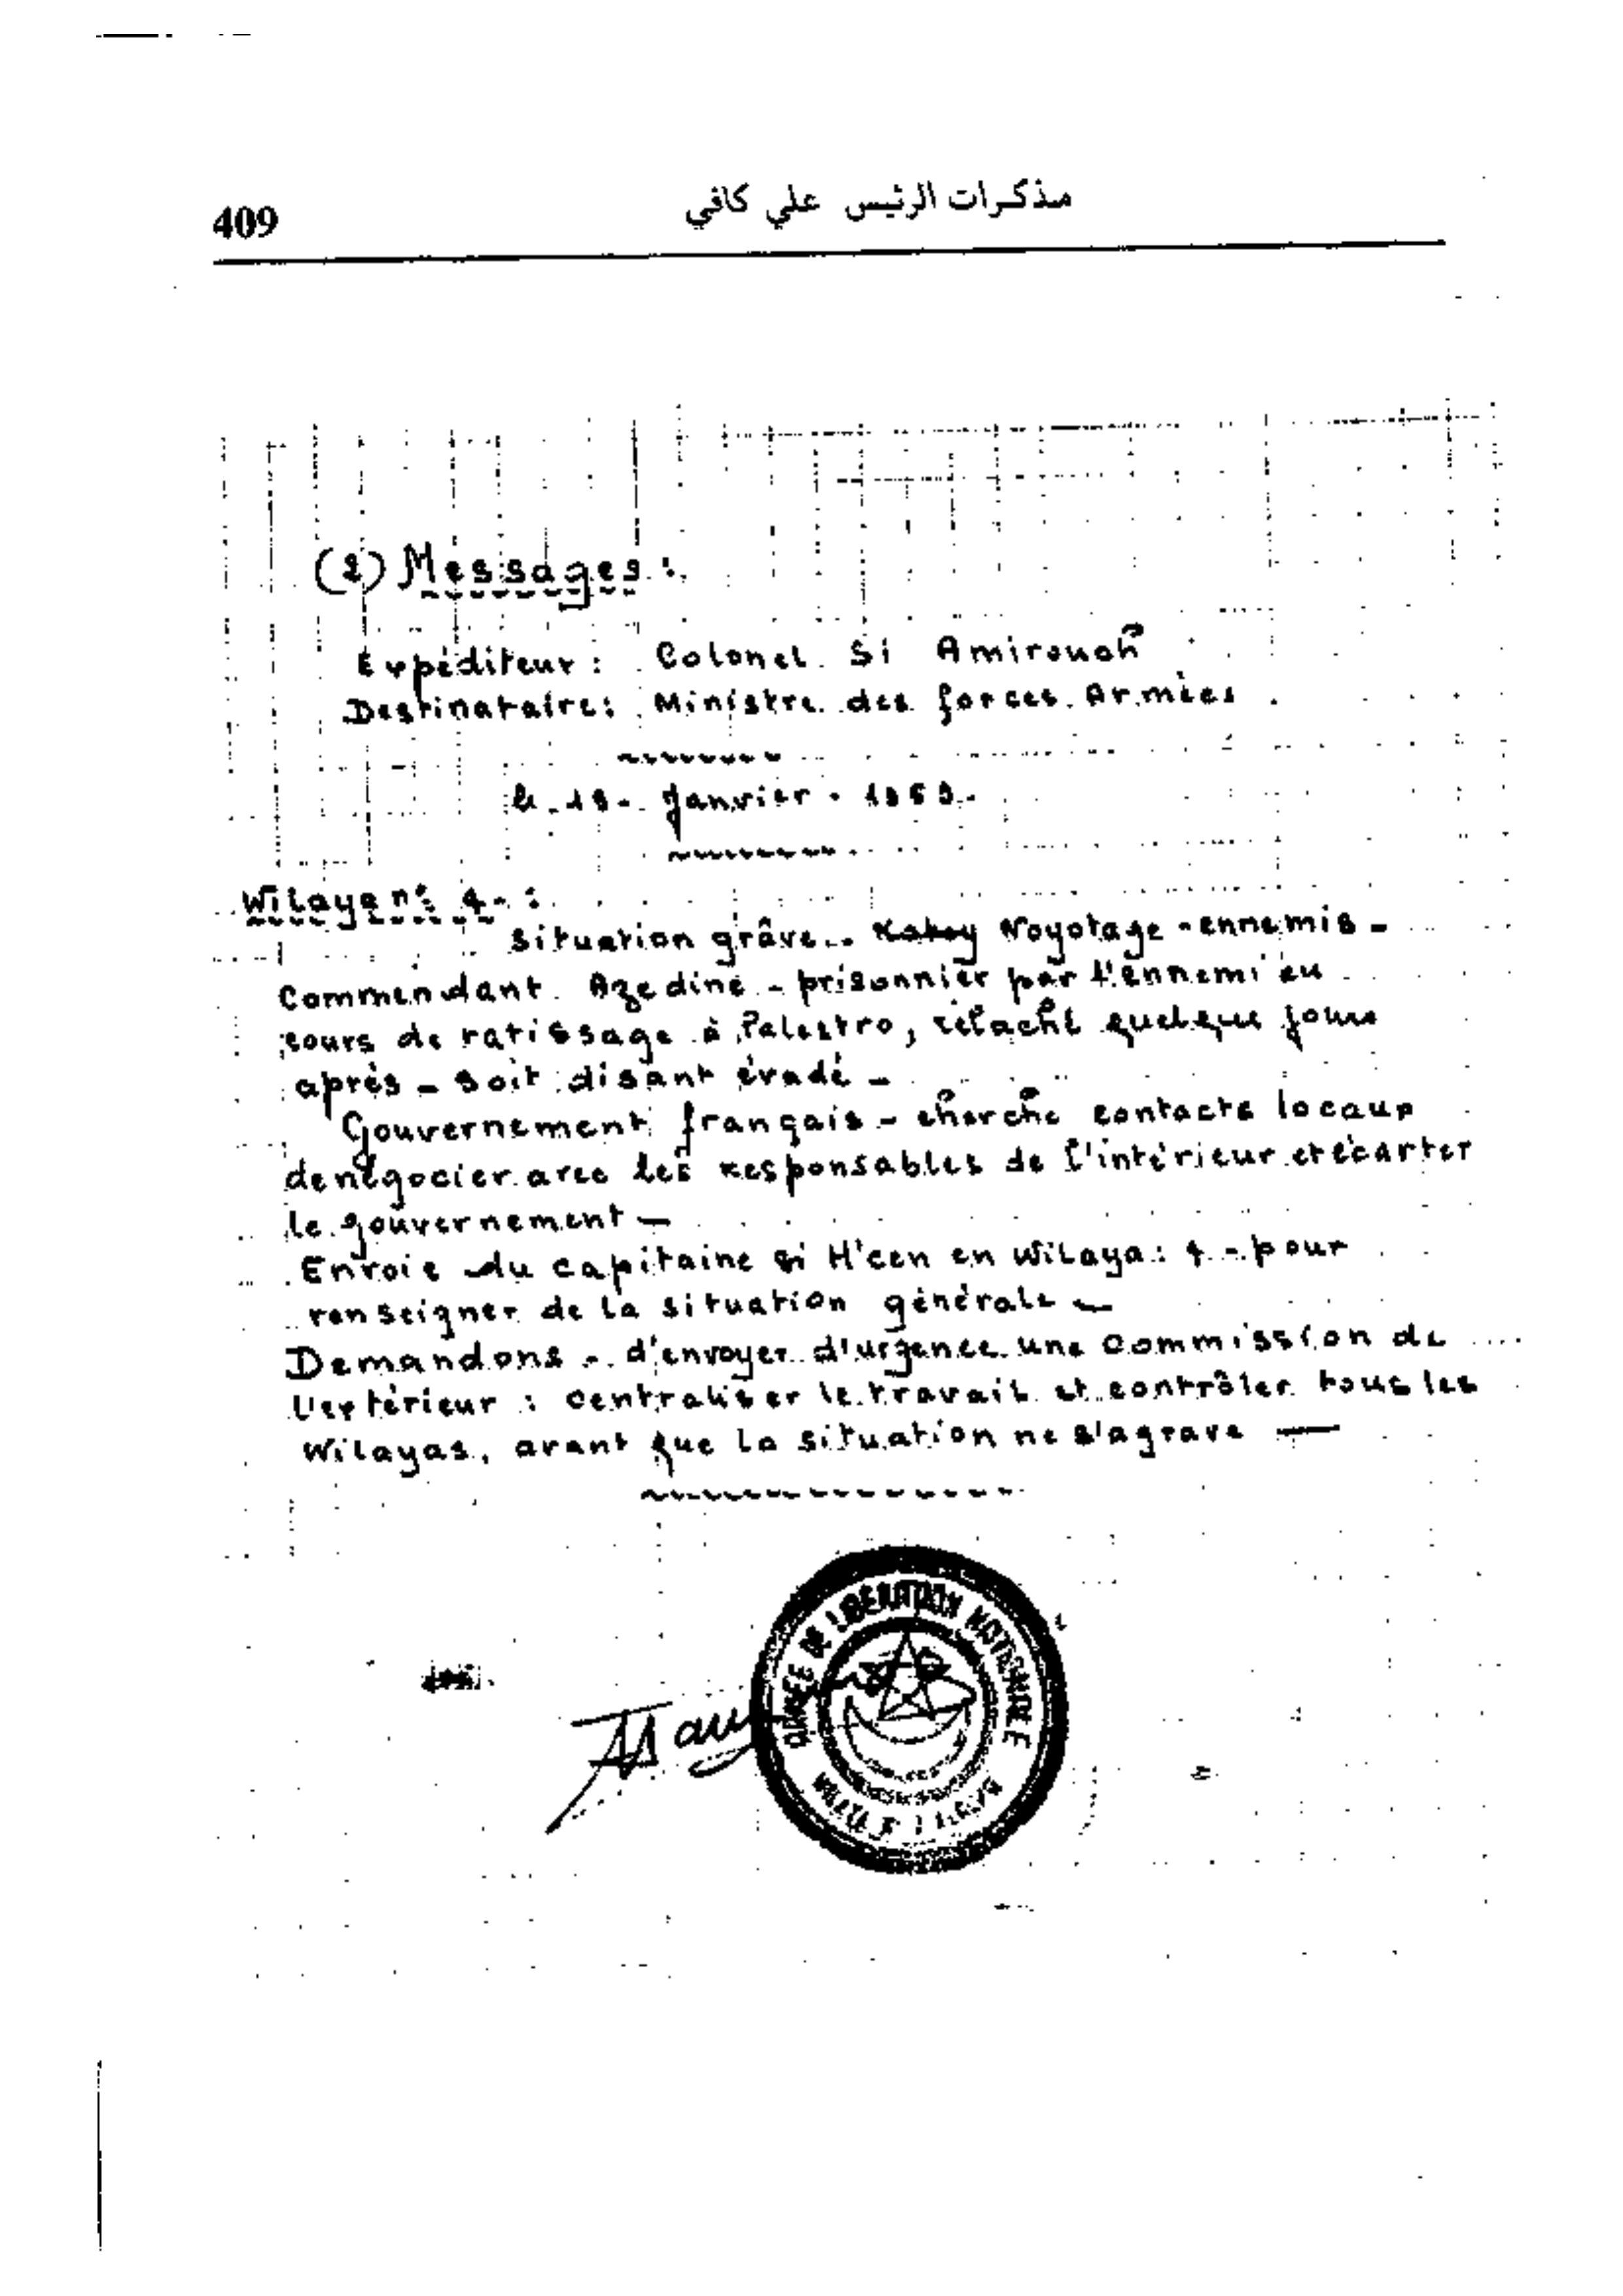 409
مذكرات الرئيس علي كافي
(2) Messages :
Expéditeur : Colonel Si Amirouch
Destinataire : Ministre des forces Armées
le 19 - Janvier - 1959 -
Wilaya n° 4 - :
Situation grâve - Noyotage - ennemis -
Commendant Azedine - prisonnier par l'ennemi au
cours de ratissage à Palestro, relaché quelque jours
après - soit disant évadé -
Gouvernement français - cherche contacts locaux
de négocier avec les responsables de l'intérieur et écarter
le gouvernement -
Envoie du capitaine si H'cen en wilaya : 4 - pour
renseigner de la situation générale -
Demandons - d'envoyer d'urgence une commission de
l'extérieur : centraliser le travail et contrôler tous les
wilayas, avant que la situation ne s'agrave -
ARMEE DE LIBERATION NATIONALE